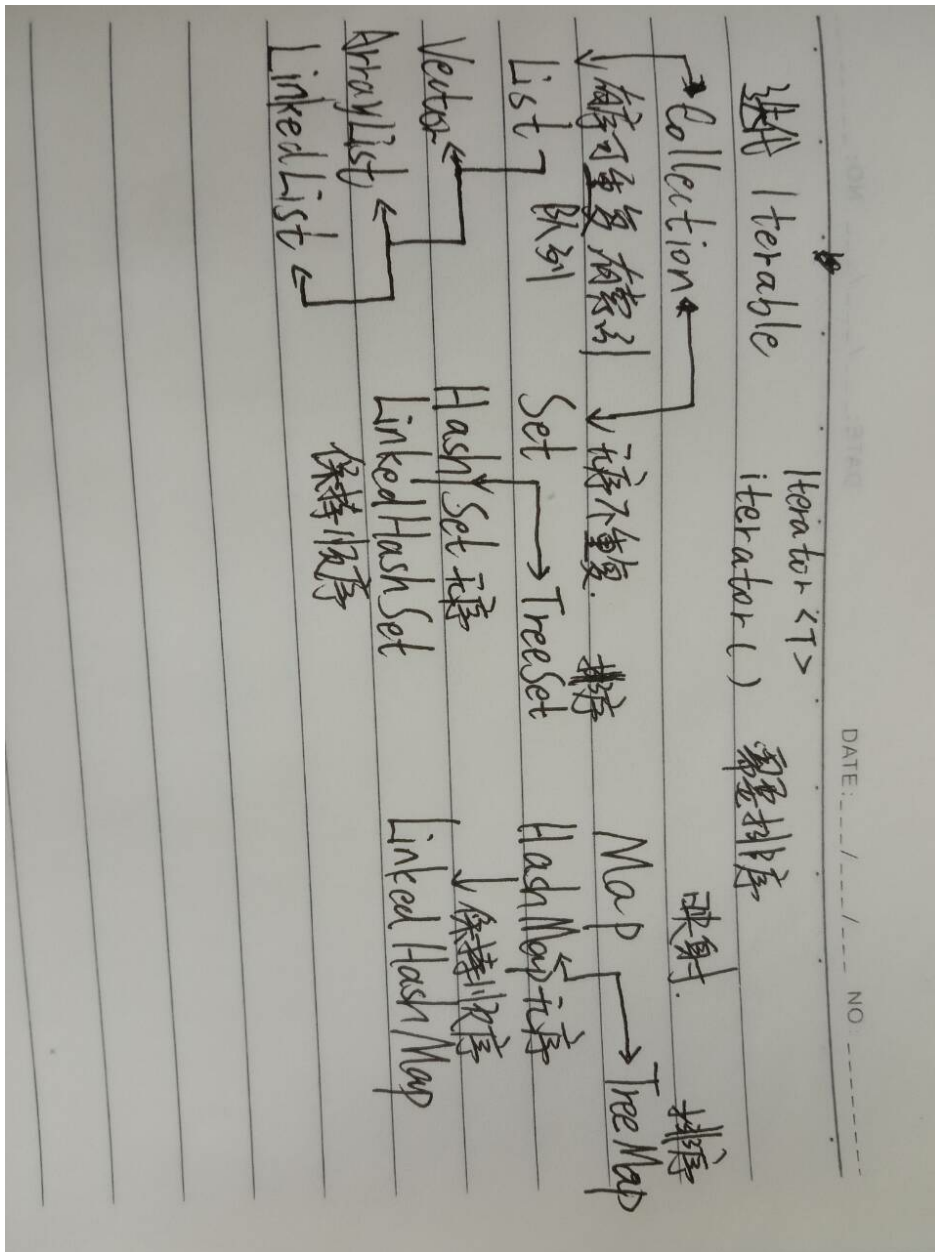 DATE:___/___/___ NO:______
Iterator<T>
迭代 Iterable iterator() 需要排序
Collection 映射.
有序可重复,有索引 无序不重复. 排序 Map 排序
List 队列 Set TreeSet HashMap 无序 TreeMap
Vector HashSet 无序 保持顺序
ArrayList LinkedHashSet LinkedHashMap
LinkedList 保持顺序